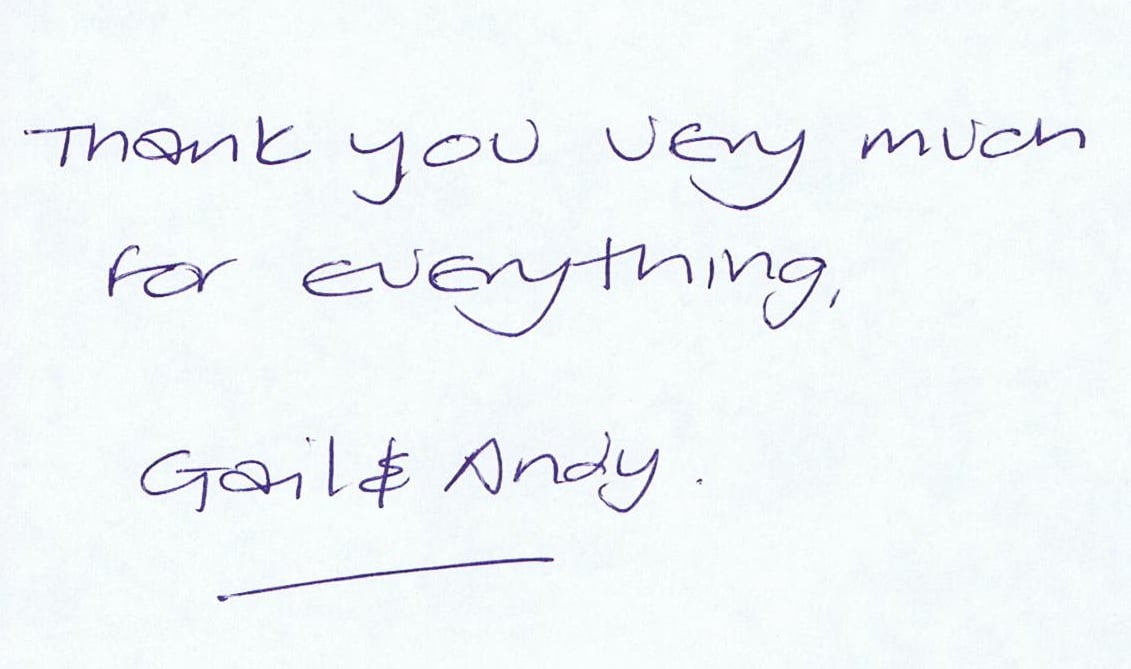 Thank you very much
for everything,
Gail & Andy.